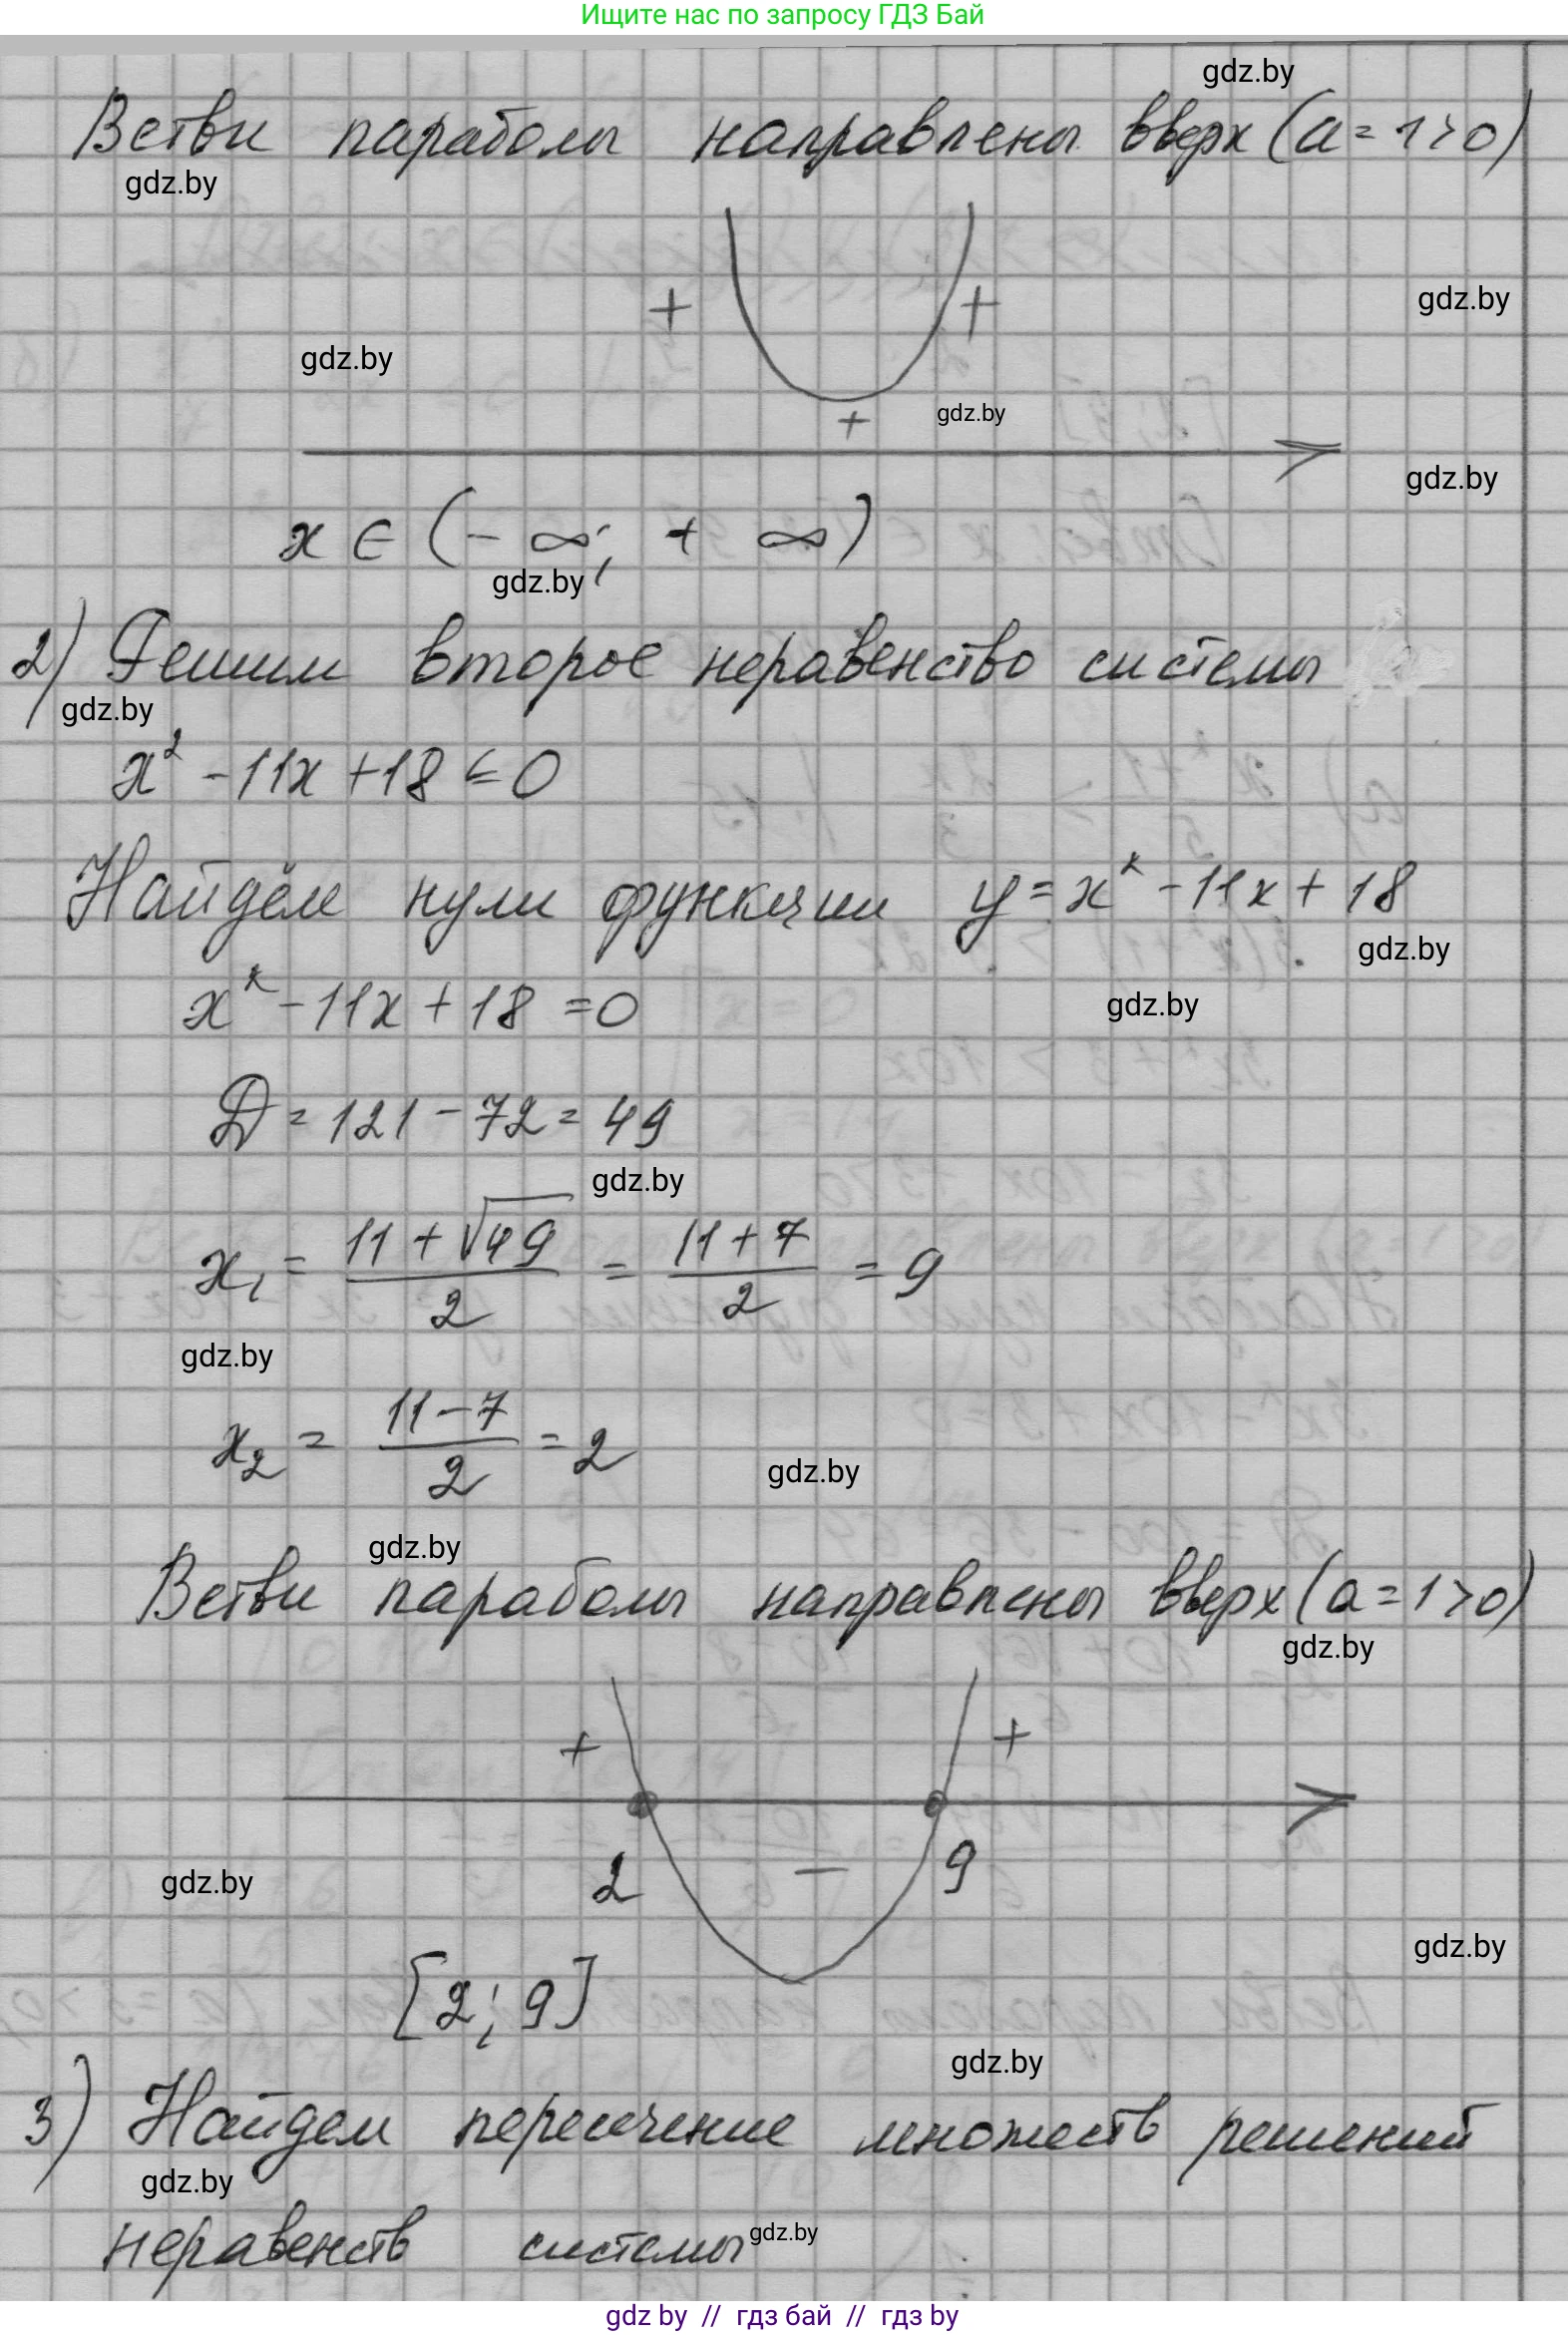 Ищите нас по запросу ГДЗ Бай
gdz.by
Ветви параболы направлены вверх (a = 1 > 0)
gdz.by
+ +
gdz.by
gdz.by
+ gdz.by
gdz.by
x ∈ (-∞; +∞)
gdz.by
2) Решим второе неравенство системы
gdz.by
x² - 11x + 18 ≤ 0
Найдём нули функции y = x² - 11x + 18
gdz.by
x² - 11x + 18 = 0
gdz.by
D = 121 - 72 = 49
gdz.by
x₁ = (11 + √49)/2 = (11 + 7)/2 = 9
gdz.by
x₂ = (11 - 7)/2 = 2
gdz.by
gdz.by
Ветви параболы направлены вверх (a = 1 > 0)
gdz.by
+ +
2 - 9
gdz.by
gdz.by
[2; 9]
gdz.by
3) Найдем пересечение множеств решений
gdz.by
неравенств системы
gdz.by
gdz by // гдз бай // гдз by